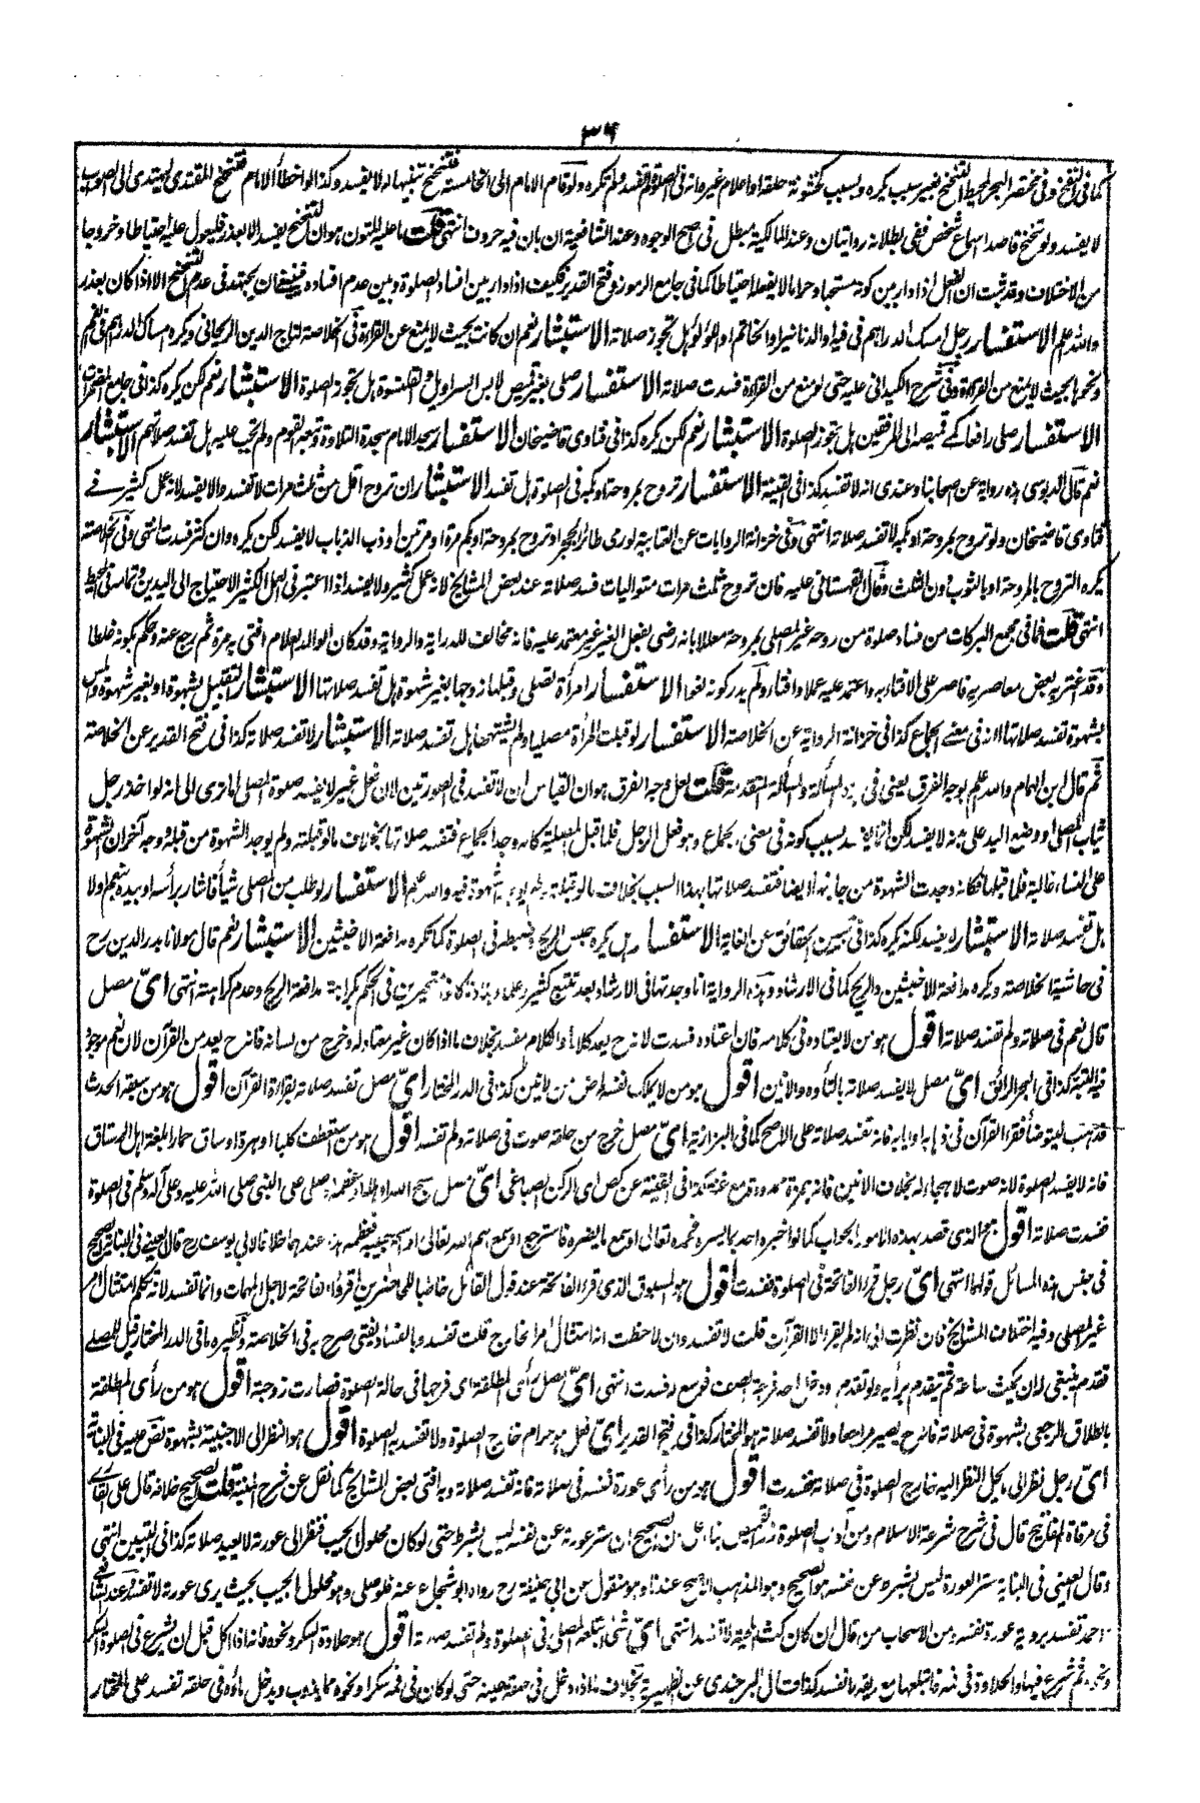 ٣٦
كما فى النفخ وفى مختصر البحر المحيط التنحنح بغير سبب يكره وبسبب كخشونة حلقه او اعلام غيره انه فى الصلوة لم تفسد ولم تكره ولو قام الامام الى الخامسة فتنحنح تنبيها له لا يفسد وكذا لو اخطأ الامام فتنحنح المقتدى ليهتدى الى الصواب
لا يفسد ولو تنحنح قاصدا اسماع شخص ففى بطلانه روايتان وعند المالكية مبطل فى اصح الوجوه وعند الشافعية ان بان فيه حروف انتهى قلت ما عليه المتون هو ان التنحنح يفسد الا بعذر فليعول عليه احتياطا وخروجا
من الاختلاف وقد ثبت ان الفعل اذا دار بين كونه مستحبا وحراما لا يفعل احتياطا كما فى جامع الرموز وفتح القدير فكيف اذا دار بين افساد الصلوة وبين عدم افساده فينبغى ان يجتهد فى عدم التنحنح الا اذا كان بعذر
والله اعلم الاستفسار رجل امسك الدراهم فى فيه او الدنانير او الخاتم او اللؤلؤ هل تجوز صلاته الاستبشار نعم ان كانت بحيث لا يمنع عن القراءة فى الخلاصة لتاج الدين الريحانى ويكره امساك الدراهم فى الفم
ونحوها بحيث لا يمنع من القراءة وفى شرح الكيدانى عليه حتى لو منع من القراءة فسدت صلاته الاستفسار صلى بغير قميص لابس السراويل والقلنسوة هل تجوز الصلوة الاستبشار نعم لكن يكره كذا فى جامع المضمرات
الاستفسار صلى رافعا كمى قميصه الى المرفقين هل تجوز الصلوة الاستبشار نعم لكن يكره كذا فى فتاوى قاضيخان الاستفسار سجد الامام سجدة التلاوة وتبعه القوم ولم تجب عليه هل تفسد صلاتهم الاستبشار
نعم قال الدبوسى هذه رواية عن اصحابنا وعندى انه لا تفسد كذا فى القنية الاستفسار تروح بمروحة او بكمه فى الصلوة هل تفسد الاستبشار ان تروح اقل من ثلث مرات لا تفسد والا يفسد لانه عمل كثير فى
فتاوى قاضيخان ولو تروح بمروحة او بكمه لا تفسد صلاته انتهى وفى خزانة الروايات عن العتابية لو رمى طائرا بحجر او تروح بمروحة او بكم مرة او مرتين او ذب الذباب لا يفسد لكن يكره وان كثر فسدت انتهى وفى الخلاصة
يكره التروح بالمروحة او بالثوب دون الثلث وقال القهستانى عليه فان تروح ثلث مرات متواليات فسد صلاته عند بعض المشايخ لانه عمل كثير ولا يفسد اذا اعتبر فى العمل الكثير الاحتياج الى اليدين وتمامه فى المحيط
انتهى قلت فما فى مجمع البركات من فساد صلوة من روحه غير المصلى بمروحة معللا بانه رضى بفعل الغير غير معتمد عليه فانه مخالف للدراية والرواية وقد كان الوالد العلام افتى به مرة ثم رجع عنه وحكم بكونه غلطا
وقد اغتر به بعض معاصريه فاصر على الافتاء به واعتمد عليه عملا وافتاء ولم يدر كونه لغوا الاستفسار امرأة تصلى وقبلها زوجها بغير شهوة هل تفسد صلاتها الاستبشار التقبيل بشهوة او بغير شهوة والمس
بشهوة تفسد صلاتها لانه فى معنى الجماع كذا فى خزانة الرواية عن الخلاصة الاستفسار لو قبلت المرأة مصليا ولم يشتهها هل تفسد صلاته الاستبشار لا تفسد صلاته كذا فى فتح القدير عن الخلاصة
ثم قال ابن الهمام والله اعلم بوجه الفرق يعنى فى هذه المسألة والمسألة المتقدمة قلت لعل وجه الفرق هو ان القياس ان لا تفسد فى الصورتين لان فعل غيره لا يفسد صلوة المصلى الا ترى الى انه لو اخذ رجل
ثياب المصلى او وضع اليد على بدنه لا يفسد لكن انما يفسد بسبب كونه فى معنى الجماع وهو فعل الرجل فلما قبل المصلية كانه وجد الجماع فتفسد صلاتها بخلاف ما لو قبلته ولم يوجد الشهوة من قبله وجه آخر ان الشهوة
على النساء غالبة فلما قبلها فكانه وجدت الشهوة من جانبها ايضا فتفسد صلاتها بهذا السبب بخلاف ما لو قبلته ولم يوجد شهوة فيه والله اعلم الاستفسار لو طلب من المصلى شيأ فاشار برأسه او بيده بنعم او لا
هل تفسد صلاته الاستبشار لا يفسد لكنه يكره كذا فى تبيين الحقائق عن الغاية الاستفسار هل يكره حبس الريح وضبطه فى الصلوة كما تكره مدافعة الاخبثين الاستبشار نعم قال مولانا بدر الدين رح
فى حاشية الخلاصة ويكره مدافعة الاخبثين والريح كما فى الارشاد وهذه الرواية انا وجدتها فى الارشاد بعد تتبع كثير وعلماء كانوا متحيرين فى الحكم بكراهة مدافعة الريح وعدم كراهته انتهى اىّ مصل
قال نعم فى صلاته ولم تفسد صلاته اقول هو من لا يعتاده فى كلامه فان اعتاده فسدت لانه ح يعد كلاما والكلام مفسد بخلاف ما اذا كان غير معتاد له وخرج من لسانه فانه ح يعد من القرآن لان نعم موجود
فيه القنية كذا فى البحر الرائق اىّ مصل لا يفسد صلاته بالتأوه والانين اقول هو من لا يملك نفسه لمرض من لانين كذا فى الدر المختار اىّ مصل تفسد صلاته بقراءة القرآن اقول هو من سبقه الحدث
فذهب ليتوضأ فقرأ القرآن فى ذهابه او ايابه فانه تفسد صلاته على الاصح كما فى البزازية اىّ مصل خرج من حلقه صوت فى صلاته ولم تفسد اقول هو من استعطف كلبا او هرة او ساق حمارا بلغة اهل الرستاق
فانه لا يفسد الصلوة لانه صوت لا هجاء له بخلاف الانين فانه بهمزة ممدودة مع غنة كذا فى القنية عن كص اى الركن الصباغى اىّ مصل سبح الله او هلله او عظمه او صلى على النبى صلى الله عليه وعلى آله وسلم فى الصلوة
ففسدت صلاته اقول هو الذى قصد بهذه الامور الجواب كما لو اخبره احد بما يسره فحمد الله تعالى او سمع ما يضره فاسترجع او سمع اسم الله تعالى او اسم حبيبه فعظمه هذا عندهما خلافا لابى يوسف رح قال العينى فى البناية الصحيح
فى جنس هذه المسائل قولهما انتهى اىّ رجل قرأ الفاتحة فى الصلوة ففسدت اقول هو المسبوق الذى قرأ الفاتحة عند قول القائل خاطبا للحاضرين اقرؤا الفاتحة لاجل المهمات وانما تفسد لانه تكلم امتثال امر
غير المصلى وفيه اختلاف المشايخ فان نظرت الى انه لم يقرأ الا القرآن قلت لا تفسد وان لاحظت انه امتثال امر الخارج قلت تفسد وبالفساد يفتى صرح به فى الخلاصة ونظيره ما فى الدر المختار قيل لمصلى
تقدم فتقدم ينبغى لان يمكث ساعة ثم يتقدم برأيه ولو تقدم او دخل احد فرجة الصف فوسع له فسدت انتهى اىّ مصل رأى المطلقة اى فرجها فى حالة الصلوة فصارت زوجته اقول هو من رأى المطلقة
بالطلاق الرجعى بشهوة فى صلاته فانه ح يصير مراجعا ولا تفسد صلاته هو المختار كذا فى فتح القدير اىّ فعل هو حرام خارج الصلوة ولا تفسد به الصلوة اقول هو النظر الى الاجنبية بشهوة نص عليه فى البناية
اىّ رجل نظر الى ما يحل النظر اليه خارج الصلوة فى صلاته ففسدت اقول هو من رأى عورة نفسه فى صلاته فانه تفسد صلاته وبه افتى بعض المشايخ كما نقل عن شرح المنية قلت الصحيح خلافه قال على القارى
فى مرقاة المفاتيح قال فى شرح شرعة الاسلام ومن آداب الصلوة زر القميص بناء على ان الصحيح ان ستر عورته عن نفسه ليس بشرط حتى لو كان محلول الجيب فنظر الى عورته لا يعيد صلاته كذا فى التبيين انتهى
وقال العينى فى البناية ستر العورة ليس بشرط عن نفسه هو الصحيح وهو المذهب الاصح عندنا وهو منقول من ابى حنيفة رح رواه ابو شجاع عنه فلو صلى وهو محلول الجيب بحيث يرى عورته لا تفسد وعند الشافعى
واحمد تفسد برؤية عورة نفسه ومن الاصحاب من قال ان كان كث اللحية لا تفسد انتهى اىّ شئ ابتلعه المصلى فى الصلوة ولم تفسد صلاته اقول هو حلاوة السكر ونحوه فانه اذا اكل قبل ان يشرع فى الصلوة السكر
ونحوه ثم شرع فيها والحلاوة فى فمه فابتلعها مع ريقه لا تفسد كذا قال البرجندى عن الظهيرية بخلاف ما اذا دخل فى حلقه عينه حتى لو كان فى فمه سكر او نحوه مما يذوب ويدخل ماؤه فى حلقه تفسد على المختار